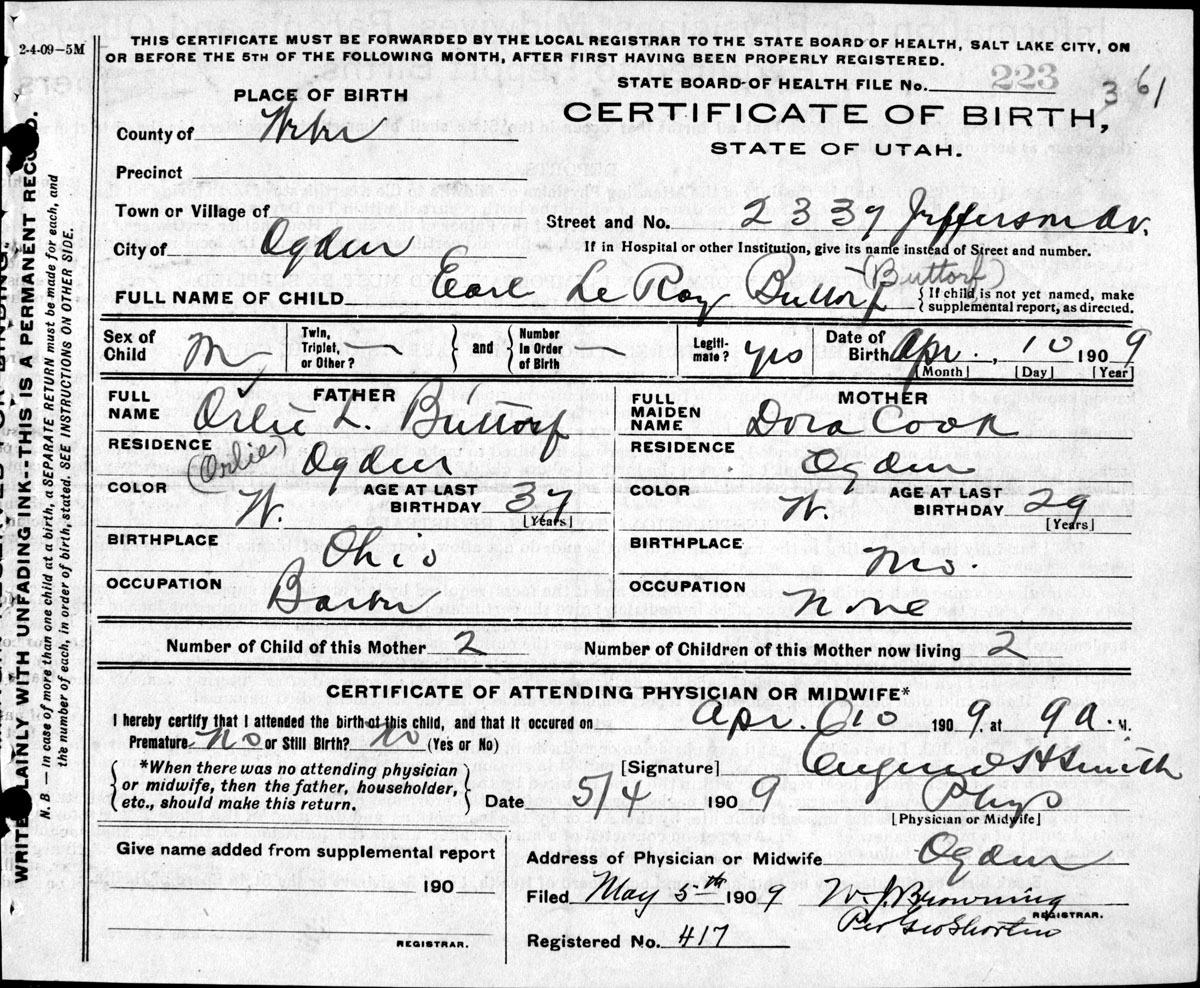 2-4-09-5M
THIS CERTIFICATE MUST BE FORWARDED BY THE LOCAL REGISTRAR TO THE STATE BOARD OF HEALTH, SALT LAKE CITY, ON
OR BEFORE THE 5TH OF THE FOLLOWING MONTH, AFTER FIRST HAVING BEEN PROPERLY REGISTERED.
STATE BOARD OF HEALTH FILE No. 223 3 61
CERTIFICATE OF BIRTH,
STATE OF UTAH.
PLACE OF BIRTH
County of Weber
Precinct
Town or Village of
City of Ogden
Street and No. 2339 Jefferson Av.
If in Hospital or other Institution, give its name instead of Street and number.
FULL NAME OF CHILD Earl Le Roy Buttorf (Buttorf)
{ If child is not yet named, make
supplemental report, as directed.
Sex of Child M Twin, Triplet, or Other? — } and { Number In Order of Birth Legitimate? yes Date of Birth Apr. , 10 1909
[Month] [Day] [Year]
FATHER
FULL NAME Orlie L. Buttorf
RESIDENCE (Orlie) Ogden
COLOR W. AGE AT LAST BIRTHDAY 37
[Years]
BIRTHPLACE Ohio
OCCUPATION Barber
MOTHER
FULL MAIDEN NAME Dora Cook
RESIDENCE Ogden
COLOR W. AGE AT LAST BIRTHDAY 29
[Years]
BIRTHPLACE Mo.
OCCUPATION None
Number of Child of this Mother 2 Number of Children of this Mother now living 2
CERTIFICATE OF ATTENDING PHYSICIAN OR MIDWIFE*
I hereby certify that I attended the birth of this child, and that it occured on Apr. 10 1909. at 9 a. M.
Premature No or Still Birth? No (Yes or No)
{ *When there was no attending physician
or midwife, then the father, householder,
etc., should make this return. }
[Signature] Eugene H Smith
Date 5/4 1909 Phys
[Physician or Midwife]
Give name added from supplemental report
190
REGISTRAR.
Address of Physician or Midwife Ogden
Filed May 5th 1909 W. J. Browning
REGISTRAR.
Per Geo Shorten
Registered No. 417
WRITE PLAINLY WITH UNFADING INK--THIS IS A PERMANENT RECORD.
N. B. — In case of more than one child at a birth, a SEPARATE RETURN must be made for each, and
the number of each, in order of birth, stated. SEE INSTRUCTIONS ON OTHER SIDE.